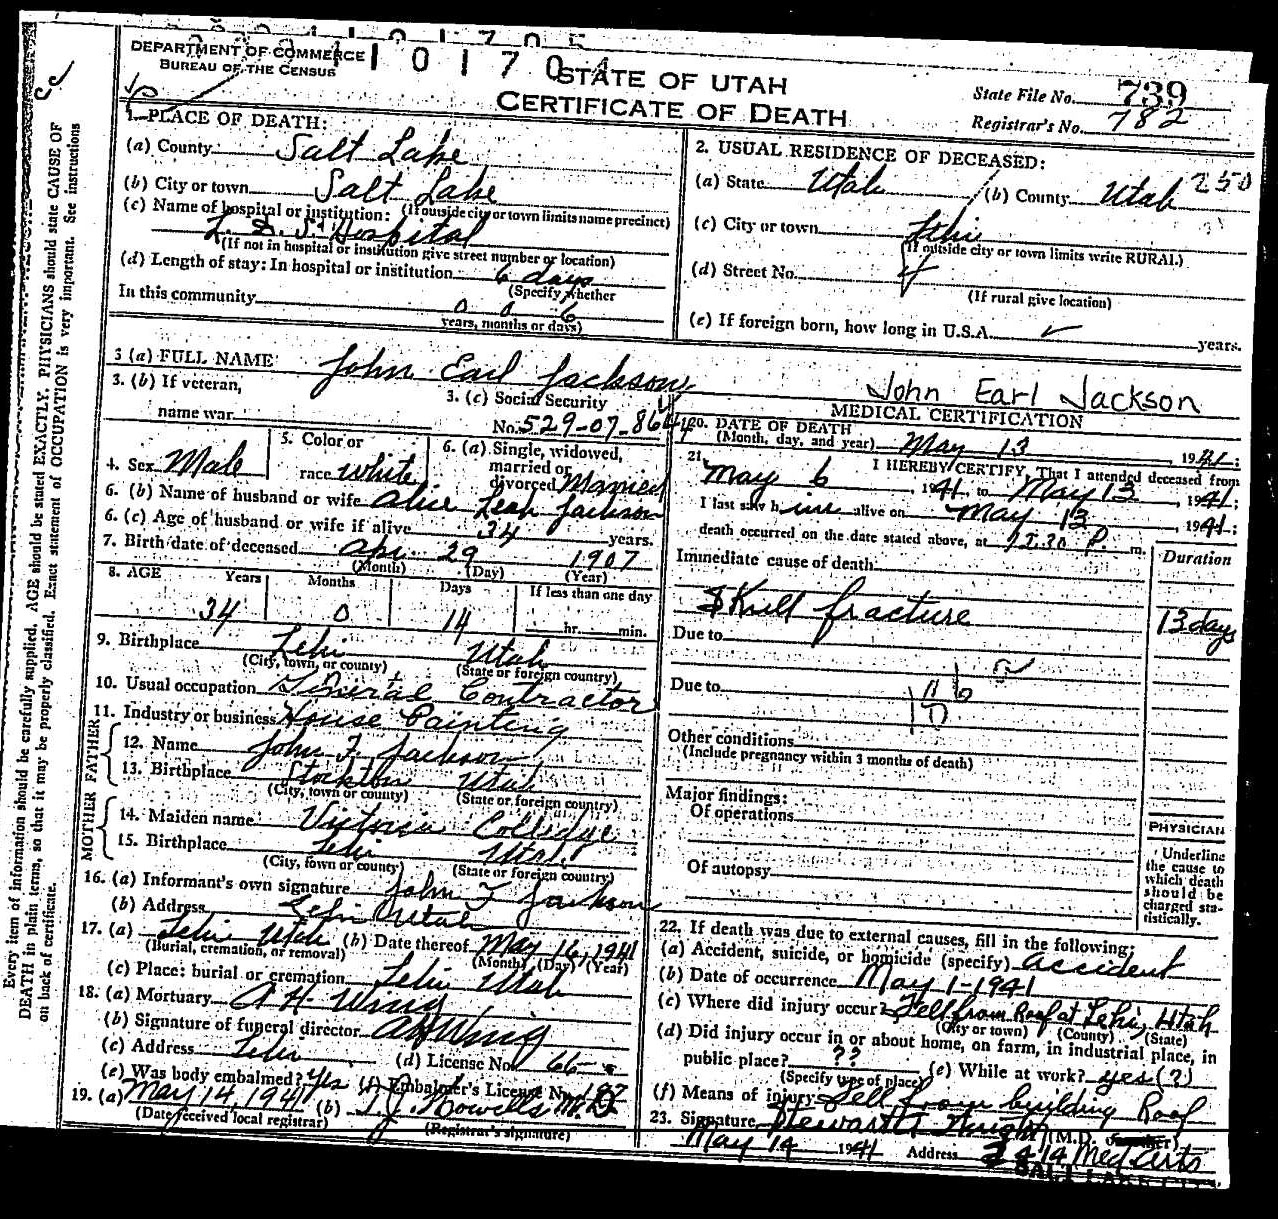 DEPARTMENT OF COMMERCE
BUREAU OF THE CENSUS
101704
STATE OF UTAH
CERTIFICATE OF DEATH
State File No. 739
Registrar's No. 782
1. PLACE OF DEATH:
(a) County Salt Lake
(b) City or town Salt Lake
(If outside city or town limits name precinct)
(c) Name of hospital or institution:
L. D. S. Hospital
(If not in hospital or institution give street number or location)
(d) Length of stay: In hospital or institution 6 days
(Specify whether
In this community 0 0 6
years, months or days)
2. USUAL RESIDENCE OF DECEASED:
(a) State Utah (b) County Utah 250
(c) City or town Lehi
(If outside city or town limits write RURAL)
(d) Street No.
(If rural give location)
(e) If foreign born, how long in U.S.A. years.
3 (a) FULL NAME John Earl Jackson
John Earl Jackson
3. (b) If veteran,
name war
3. (c) Social Security
No. 529-07-8644
4. Sex Male
5. Color or
race white
6. (a) Single, widowed,
married or
divorced Married
6. (b) Name of husband or wife Alice Leah Jackson
6. (c) Age of husband or wife if alive 34 years.
7. Birth date of deceased Apr. 29 1907
(Month) (Day) (Year)
8. AGE Years Months Days If less than one day
34 0 14 hr. min.
9. Birthplace Lehi Utah
(City, town, or county) (State or foreign country)
10. Usual occupation General Contractor
11. Industry or business House Painting
FATHER
12. Name John F. Jackson
13. Birthplace Stockton Utah
(City, town or county) (State or foreign country)
MOTHER
14. Maiden name Victoria Colledge
15. Birthplace Lehi Utah
(City, town or county) (State or foreign country)
16. (a) Informant's own signature John F Jackson
(b) Address Lehi Utah
17. (a) Lehi Utah (b) Date thereof May 16, 1941
(Burial, cremation, or removal) (Month) (Day) (Year)
(c) Place: burial or cremation Lehi Utah
18. (a) Mortuary A H Wing
(b) Signature of funeral director A H Wing
(c) Address Lehi (d) License No. 66
(e) Was body embalmed? Yes (f) Embalmer's License No. 187
19. (a) May 14 1941 (b) T. J. Howells M.D.
(Date received local registrar) (Registrar's signature)
MEDICAL CERTIFICATION
20. DATE OF DEATH
(Month, day, and year) May 13, 1941;
21. I HEREBY CERTIFY, That I attended deceased from
May 6, 1941, to May 13, 1941;
I last saw him alive on May 13, 1941;
death occurred on the date stated above, at 12:30 P. m.
Immediate cause of death Duration
Skull fracture 13 days
Due to
Due to
Other conditions
(Include pregnancy within 3 months of death)
Major findings:
Of operations
Of autopsy
PHYSICIAN
Underline
the cause to
which death
should be
charged sta-
tistically.
22. If death was due to external causes, fill in the following:
(a) Accident, suicide, or homicide (specify) accident
(b) Date of occurrence May 1-1941
(c) Where did injury occur? Fell from Roof at Lehi, Utah
(City or town) (County) (State)
(d) Did injury occur in or about home, on farm, in industrial place, in
public place? ?? (e) While at work? yes (?)
(Specify type of place)
(f) Means of injury Fell from building Roof
23. Signature Stewart A Wright (M.D.
May 14 1941 Address 414 Med Arts
SALT LAKE CITY
Every item of information should be carefully supplied. AGE should be stated EXACTLY. PHYSICIANS should state CAUSE OF
DEATH in plain terms, so that it may be properly classified. Exact statement of OCCUPATION is very important. See instructions
on back of certificate.